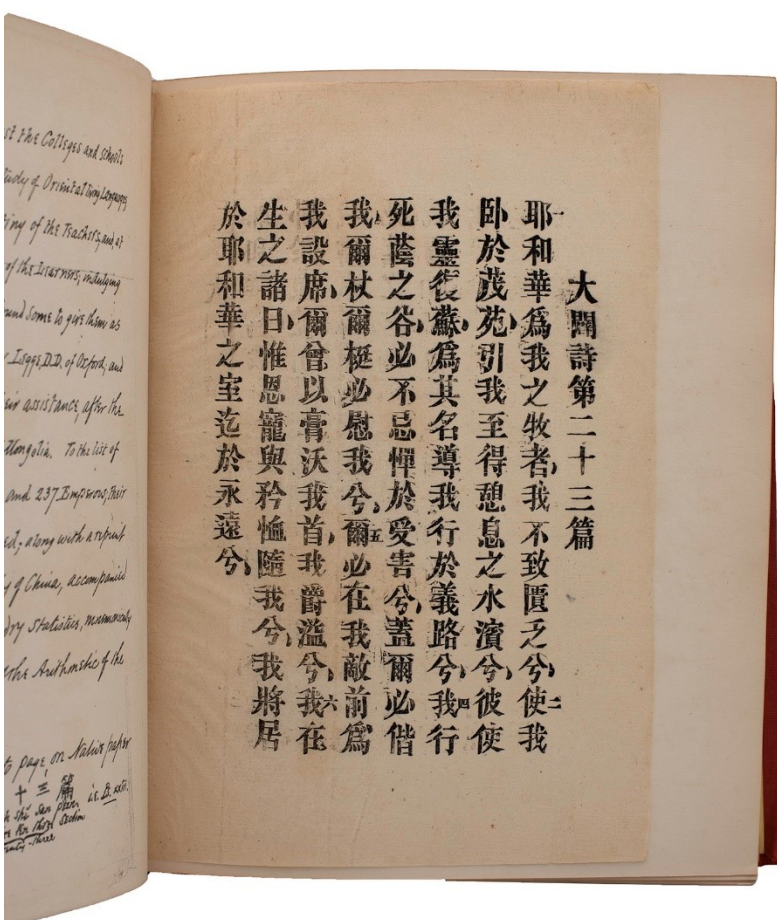 the Colleges and schools
study of Oriental living Languages
of the Teachers, and at
of the Learners; indulging
found some to give them as
Legge, D.D. of Oxford, and
their assistance, after the
Mongolia. To the list of
and 237 Emperors, their
along with a reprint
of China, accompanied
Statistics, mnemonically
the Arithmetic of the
page, on Native paper
十三篇 i.e.
shi san
Section
three
大闢詩第二十三篇
一耶和華爲我之牧者、我不致匱乏兮、二使我
卧於茂苑、引我至得憩息之水濱兮、彼使
我靈復蘇、爲其名導我行於義路兮、四我行
死蔭之谷、必不忌憚於受害兮、蓋爾必偕
我、爾杖爾梃必慰我兮、五爾必在我敵前爲
我設席、爾曾以膏沃我首、我爵溢兮、六我在
生之諸日、惟恩寵與矜恤隨我兮、我將居
於耶和華之室迄於永遠兮、